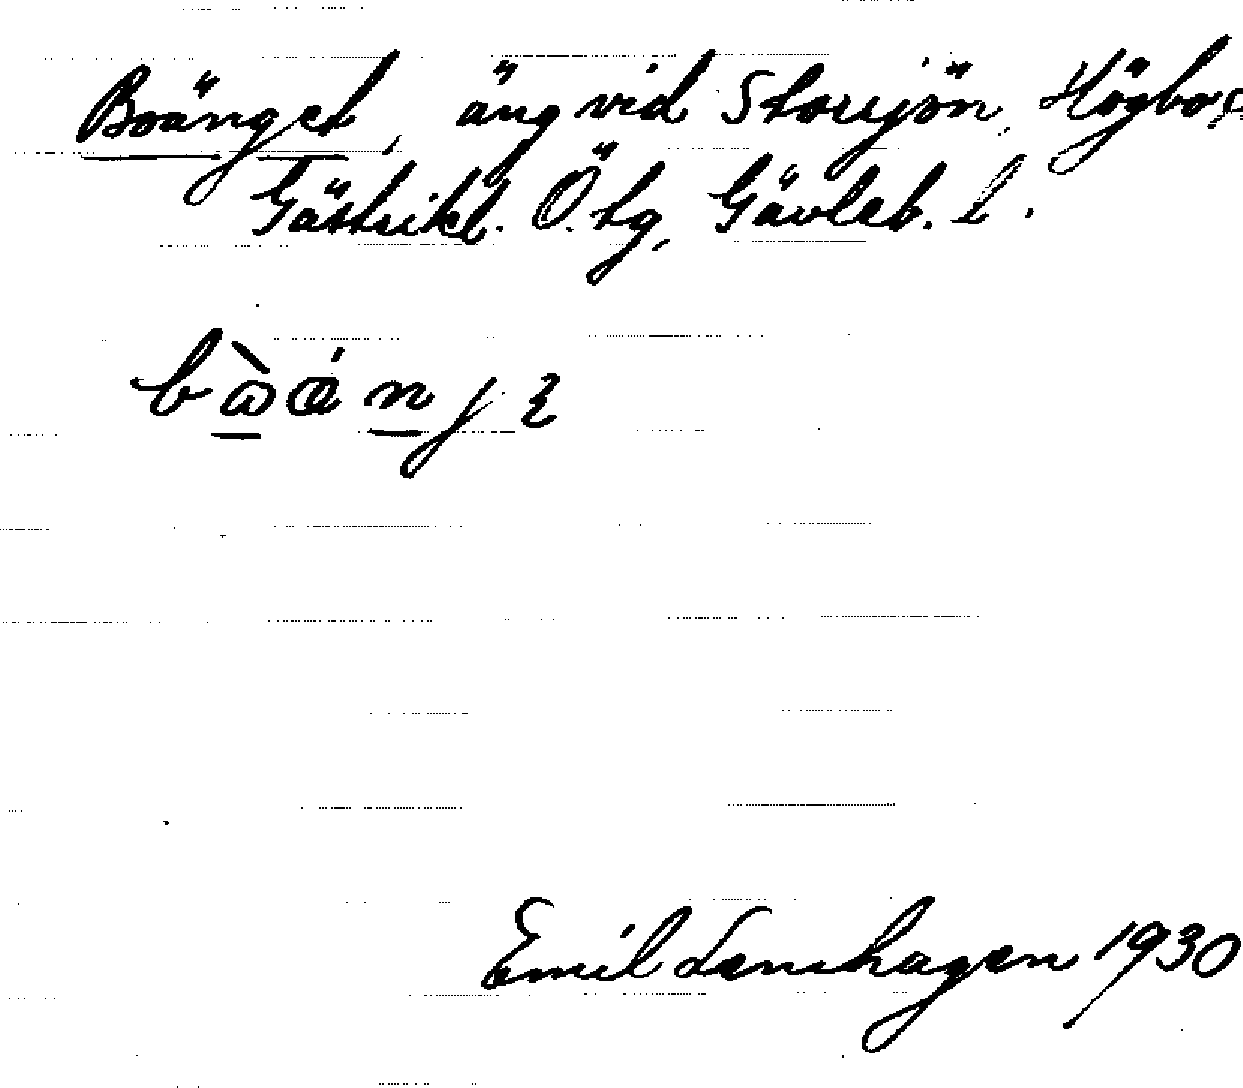 Boänget, äng vid Storsjön, Högbo s,
Gästrikl. Ö. tg, Gävleb. l.
Emil Lenhagen 1930